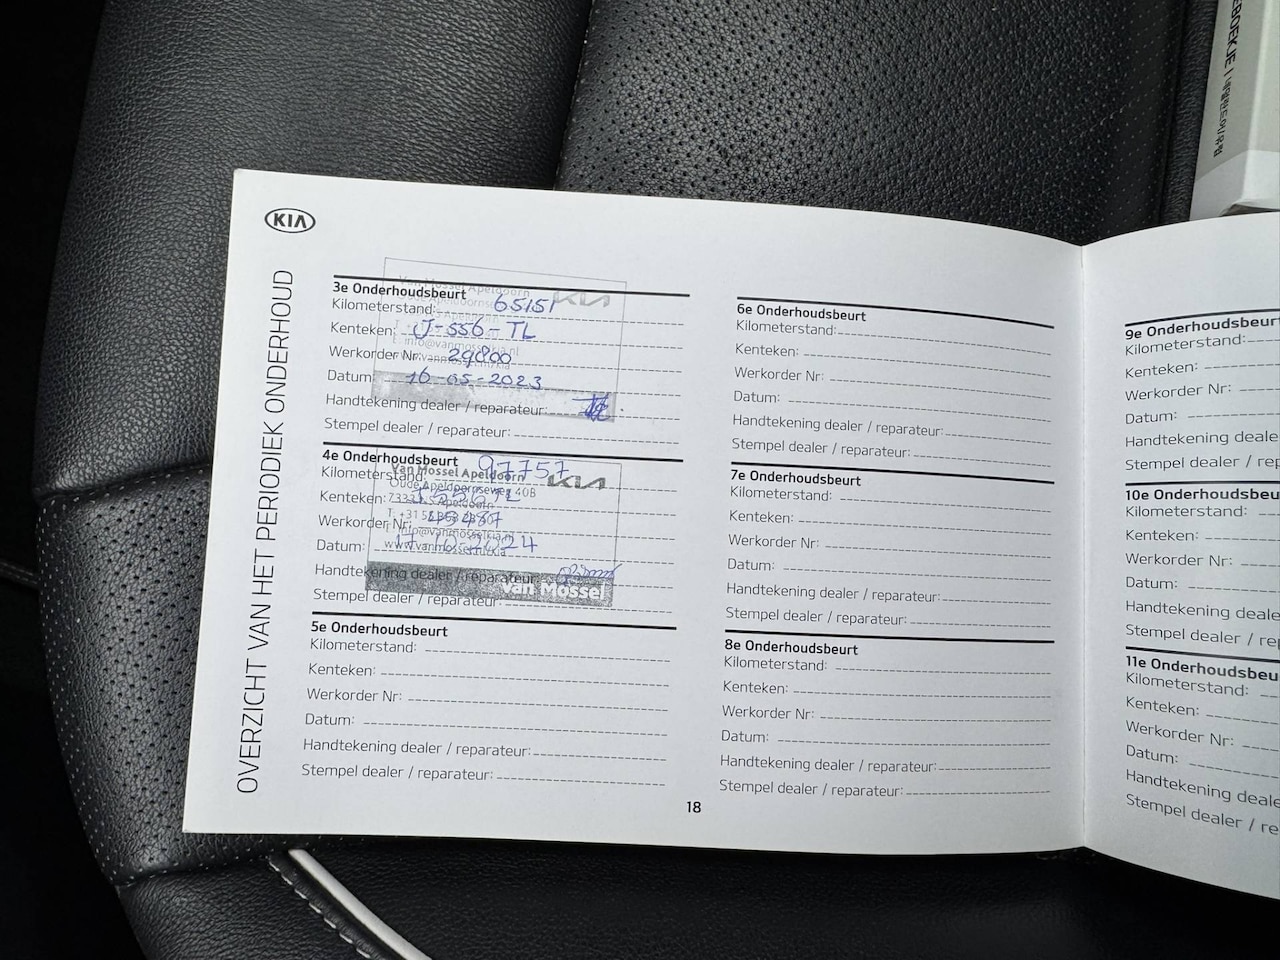 KIA
OVERZICHT VAN HET PERIODIEK ONDERHOUD
3e Onderhoudsbeurt
Kilometerstand: 65151
Kenteken: J-556-TL
Werkorder Nr: 29800
Datum: 16-05-2023
Handtekening dealer / reparateur:
Stempel dealer / reparateur:
Van Mossel Apeldoorn
KIA
4e Onderhoudsbeurt
Kilometerstand: 97757
Kenteken:
Werkorder Nr:
Datum:
Handtekening dealer / reparateur:
Stempel dealer / reparateur:
Van Mossel Apeldoorn
Oude Apeldoornseweg 40B
KIA
info@vanmosselkia.nl
www.vanmossel.nl/kia
Van Mossel
5e Onderhoudsbeurt
Kilometerstand:
Kenteken:
Werkorder Nr:
Datum:
Handtekening dealer / reparateur:
Stempel dealer / reparateur:
6e Onderhoudsbeurt
Kilometerstand:
Kenteken:
Werkorder Nr:
Datum:
Handtekening dealer / reparateur:
Stempel dealer / reparateur:
7e Onderhoudsbeurt
Kilometerstand:
Kenteken:
Werkorder Nr:
Datum:
Handtekening dealer / reparateur:
Stempel dealer / reparateur:
8e Onderhoudsbeurt
Kilometerstand:
Kenteken:
Werkorder Nr:
Datum:
Handtekening dealer / reparateur:
Stempel dealer / reparateur:
18
9e Onderhoudsbeurt
Kilometerstand:
Kenteken:
Werkorder Nr:
Datum:
Handtekening deale
Stempel dealer / rep
10e Onderhoudsbeu
Kilometerstand:
Kenteken:
Werkorder Nr:
Datum:
Handtekening deale
Stempel dealer / rep
11e Onderhoudsbeu
Kilometerstand:
Kenteken:
Werkorder Nr:
Datum:
Handtekening deale
Stempel dealer / re
EBOEKJE |